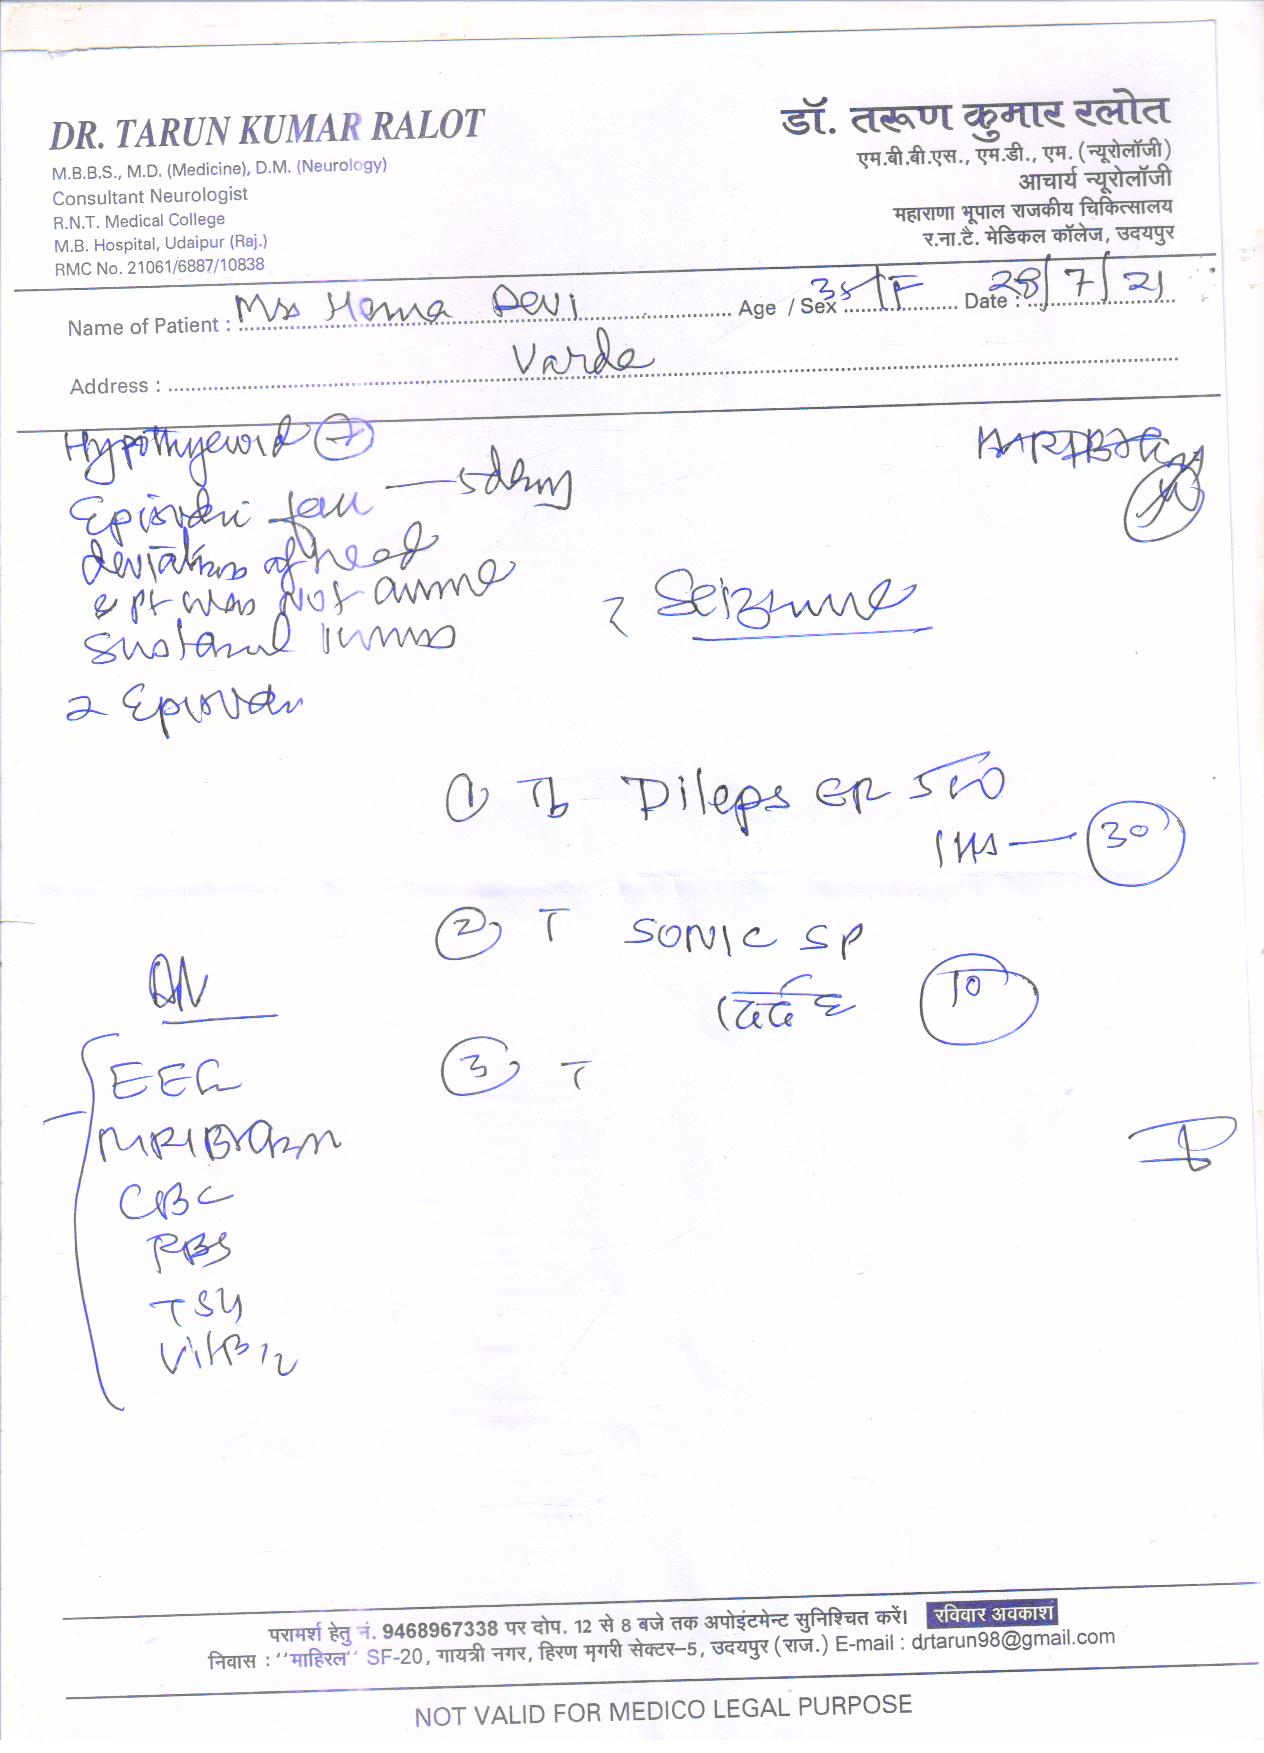 DR. TARUN KUMAR RALOT
M.B.B.S., M.D. (Medicine), D.M. (Neurology)
Consultant Neurologist
R.N.T. Medical College
M.B. Hospital, Udaipur (Raj.)
RMC No. 21061/6887/10838
डॉ. तरूण कुमार रलोत
एम.बी.बी.एस., एम.डी., एम. (न्यूरोलॉजी)
आचार्य न्यूरोलॉजी
महाराणा भूपाल राजकीय चिकित्सालय
र.ना.टै. मेडिकल कॉलेज, उदयपुर
Name of Patient : Mrs Hema Devi Age / Sex 38/F Date : 28/7/21
Address : Varda
Hypothyroid
5 days
deviation of head
& pt was not
? Seizure
2
① Tb Dileps ER 500
1 HS — 30
② T SONIC SP
दर्द 10
③ T
EEG
MRI Brain
CBC
RBS
TSH
Vit B12
परामर्श हेतु नं. 9468967338 पर दोप. 12 से 8 बजे तक अपोइंटमेन्ट सुनिश्चित करें। रविवार अवकाश
निवास : ''माहिरल'' SF-20, गायत्री नगर, हिरण मगरी सेक्टर-5, उदयपुर (राज.) E-mail : drtarun98@gmail.com
NOT VALID FOR MEDICO LEGAL PURPOSE